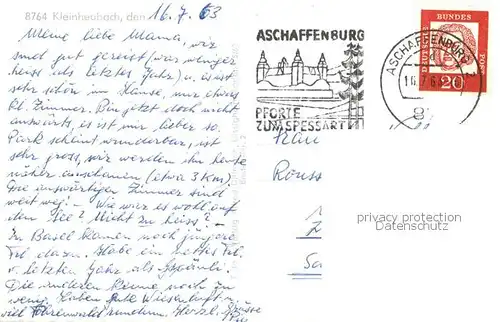 8764 Kleinheubach, den 16.7.63
Meine liebe Mama, wir
sind gut gereist (war weniger
heiss als letztes Jahr) u. es ist
sehr schön im Hause, nur etwas
kl. Zimmer. Bin jetzt doch nicht
auswärts, es ist mir lieber so.
Park scheint wunderbar, ist
sehr gross, wir werden ihn heute
näher anschauen (etwa 3 Km)
Die auswärtigen Zimmer sind
weit weg! - Wie war es wohl auf
dem See? Nicht zu heiss?
In Basel kamen noch jüngere
Frl. dazu. Habe ein nettes Frl.
v. letztem Jahr als
Die anderen Beine noch zu
wenig. Haben gute Wiesenluft u.
viel Föhrenwald rundum. Herzl. Grüsse
ASCHAFFENBURG
PFORTE
ZUM SPESSART
ASCHAFFENBURG
16.7.6
DEUTSCHE
BUNDES
POST
20
Frau
Rouss
privacy protection
Datenschutz